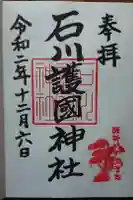 奉拝
石川護國神社
令和二年十二月六日